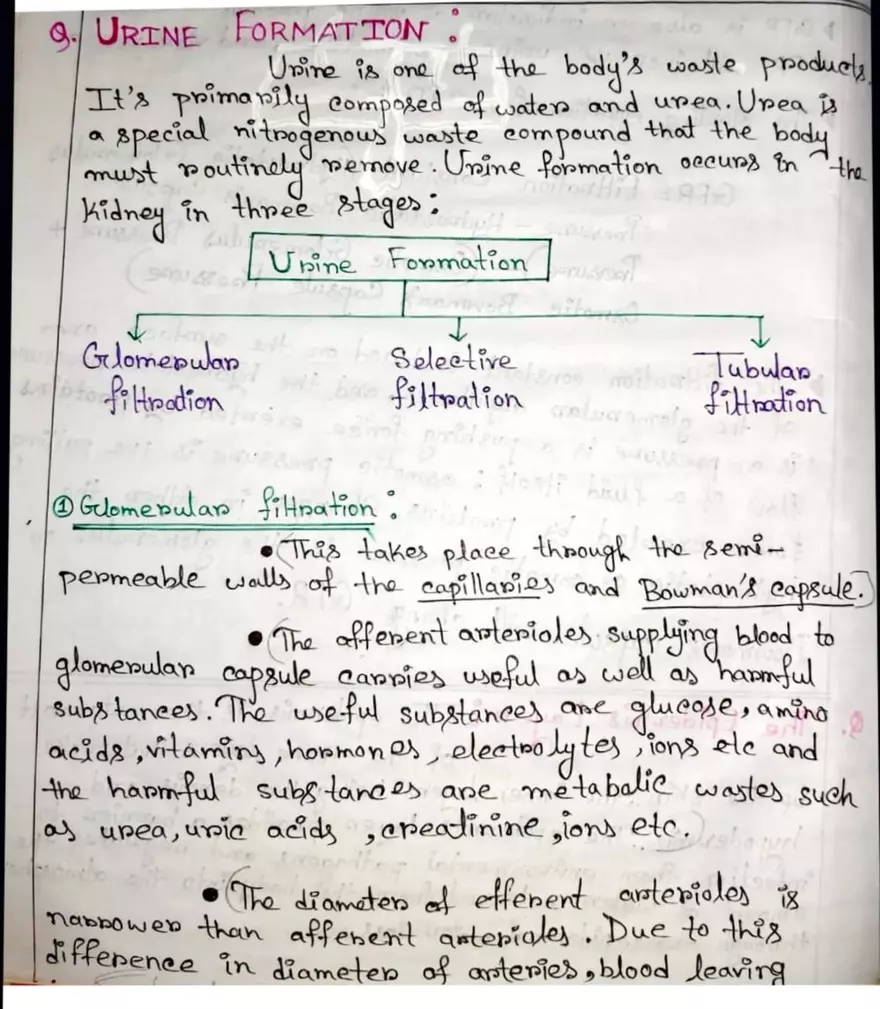 Q. URINE FORMATION :
Urine is one of the body's waste products.
It's primarily composed of water and urea. Urea is
a special nitrogenous waste compound that the body
must routinely remove. Urine formation occurs in the
kidney in three stages :
Urine Formation
Glomerular filtration
Selective filtration
Tubular filtration
① Glomerular filtration :
• (This takes place through the semi-
permeable walls of the capillaries and Bowman's capsule.)
• (The afferent arterioles supplying blood to
glomerular capsule carries useful as well as harmful
substances. The useful substances are glucose, amino
acids, vitamins, hormones, electrolytes, ions etc and
the harmful substances are metabolic wastes such
as urea, uric acids, creatinine, ions etc.
• (The diameter of efferent arterioles is
narrower than afferent arterioles. Due to this
difference in diameter of arteries, blood leaving